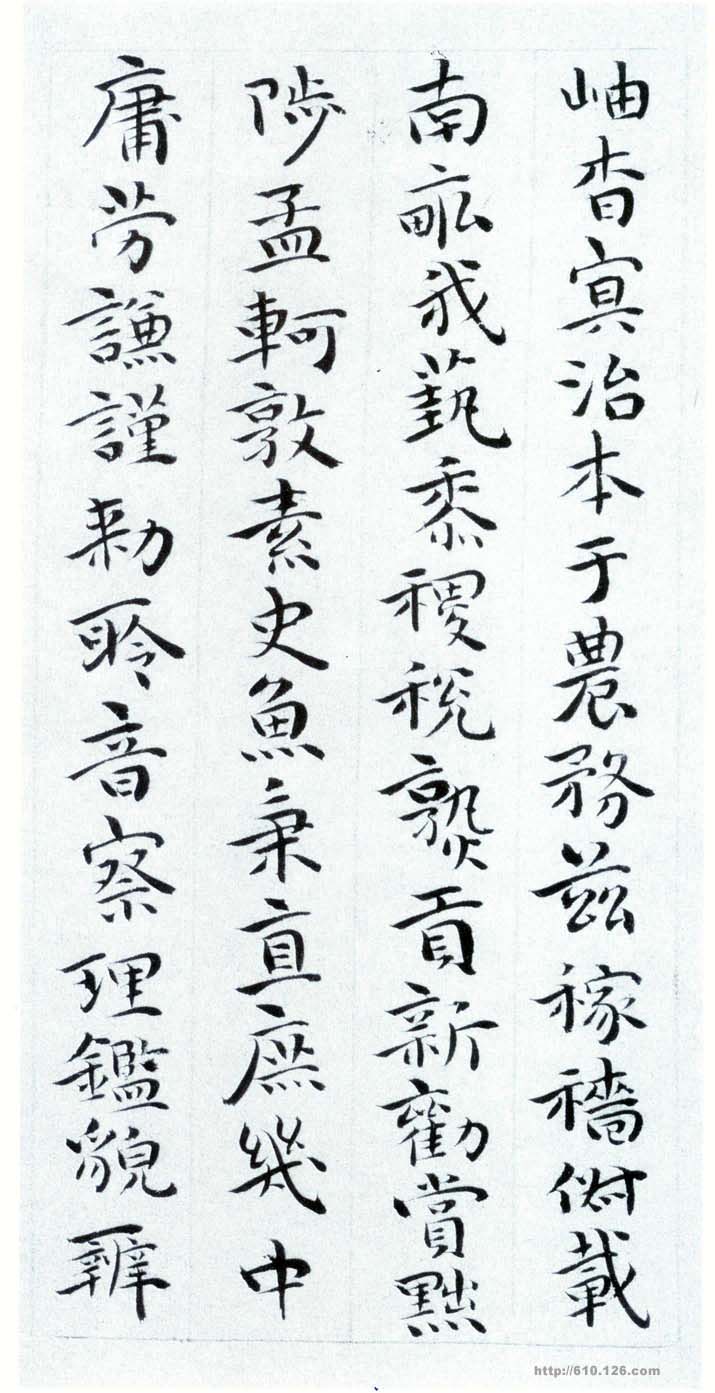 岫杳冥治本于農務茲稼穡俶載
南畝我藝黍稷稅熟貢新勸賞黜
陟孟軻敦素史魚秉直庶幾中
庸勞謙謹勅聆音察理鑑貌辨
http://610.126.com